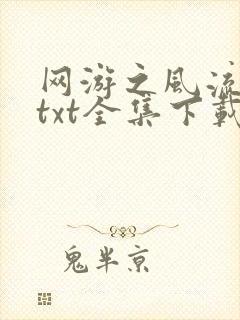 网游之风流
txt全集下载
鬼半京